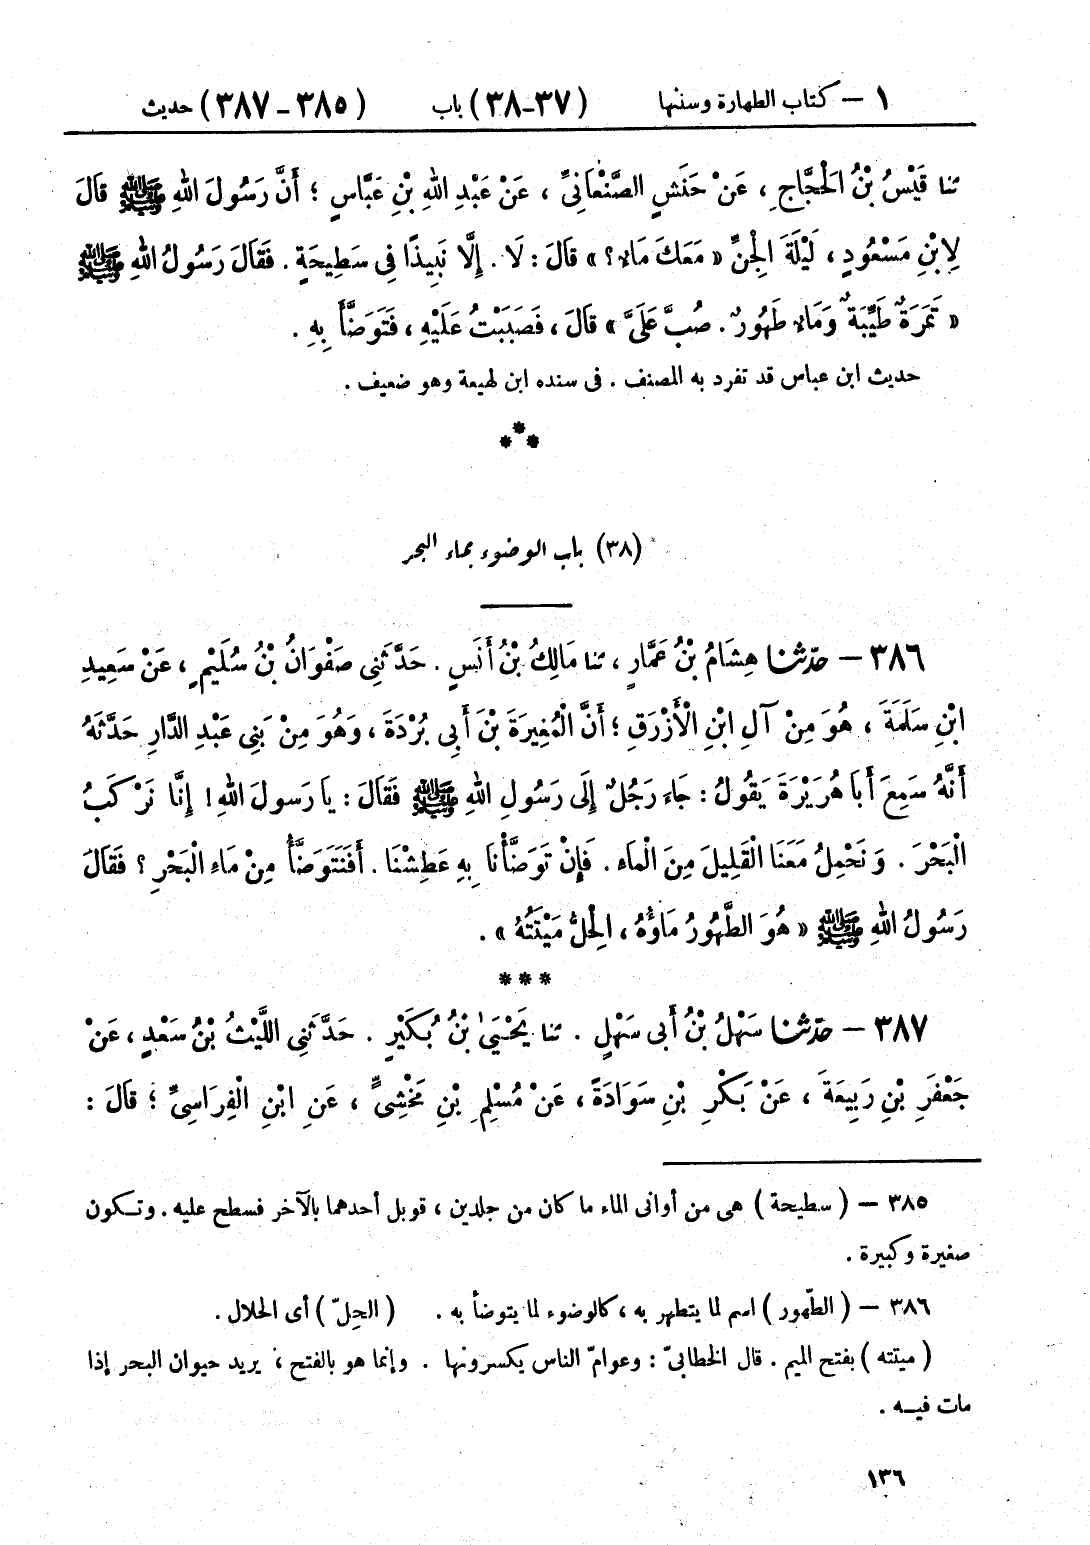 ١ – كتاب الطهارة وسننها (٣٧-٣٨) باب (٣٨٥ – ٣٨٧) حديث
ثنا قَيْسُ بْنُ الْحَجَّاجِ ، عَنْ حَنَشٍ الصَّنْعَانِيِّ ، عَنْ عَبْدِ اللهِ بْنِ عَبَّاسٍ ؛ أَنَّ رَسُولَ اللهِ ﷺ قَالَ
لِابْنِ مَسْعُودٍ ، لَيْلَةَ الْجِنِّ « مَعَكَ مَاءٌ ؟ » قَالَ : لَا . إِلَّا نَبِيذًا فِى سَطِيحَةٍ . فَقَالَ رَسُولُ اللهِ ﷺ
« تَمَرَةٌ طَيِّبَةٌ وَمَاءٌ طَهُورٌ . صُبَّ عَلَىَّ » قَالَ ، فَصَبَبْتُ عَلَيْهِ ، فَتَوَضَّأَ بِهِ .
حديث ابن عباس قد تفرد به المصنف . فى سنده ابن لهيعة وهو ضعيف .
***
(٣٨) باب الوضوء بماء البحر
٣٨٦ – حدّثنا هِشَامُ بْنُ عَمَّارٍ ، ثنا مَالِكُ بْنُ أَنَسٍ . حَدَّثَنِى صَفْوَانُ بْنُ سُلَيْمٍ ، عَنْ سَعِيدِ
ابْنِ سَلَمَةَ ، هُوَ مِنْ آلِ ابْنِ الْأَزْرَقِ ؛ أَنَّ الْمُغِيرَةَ بْنَ أَبِى بُرْدَةَ ، وَهُوَ مِنْ بَنِى عَبْدِ الدَّارِ حَدَّثَهُ
أَنَّهُ سَمِعَ أَبَا هُرَيْرَةَ يَقُولُ : جَاءَ رَجُلٌ إِلَى رَسُولِ اللهِ ﷺ فَقَالَ : يَا رَسولَ اللهِ ! إِنَّا نَرْكَبُ
الْبَحْرَ . وَنَحْمِلُ مَعَنَا الْقَلِيلَ مِنَ الْمَاءِ . فَإِنْ تَوَضَّأْنَا بِهِ عَطِشْنَا . أَفَنَتَوَضَّأُ مِنْ مَاءِ الْبَحْرِ ؟ فَقَالَ
رَسُولُ اللهِ ﷺ « هُوَ الطَّهُورُ مَاؤُهُ ، الْحِلُّ مَيْتَتُهُ » .
***
٣٨٧ – حدّثنا سَهْلُ بْنُ أَبِى سَهْلٍ . ثنا يَحْيَىٰ بْنُ بُكَيْرٍ . حَدَّثَنِى اللَّيْثُ بْنُ سَعْدٍ ، عَنْ
جَعْفَرِ بْنِ رَبِيعَةَ ، عَنْ بَكْرِ بْنِ سَوَادَةَ ، عَنْ مُسْلِمِ بْنِ مَخْشِىٍّ ، عَنِ ابْنِ الْفِرَاسِىِّ ؛ قَالَ :
٣٨٥ – ( سطيحة ) هى من أوانى الماء ما كان من جلدين ، قوبل أحدهما بالآخر فسطح عليه . وتكون
صغيرة وكبيرة .
٣٨٦ – ( الطّهور ) اسم لما يتطهر به ، كالوضوء لما يتوضأ به . ( الحِلّ ) أى الحلال .
( ميتته ) بفتح الميم . قال الخطابىّ : وعوامّ الناس يكسرونها . وإنما هو بالفتح ، يريد حيوان البحر إذا
مات فيه .
١٣٦